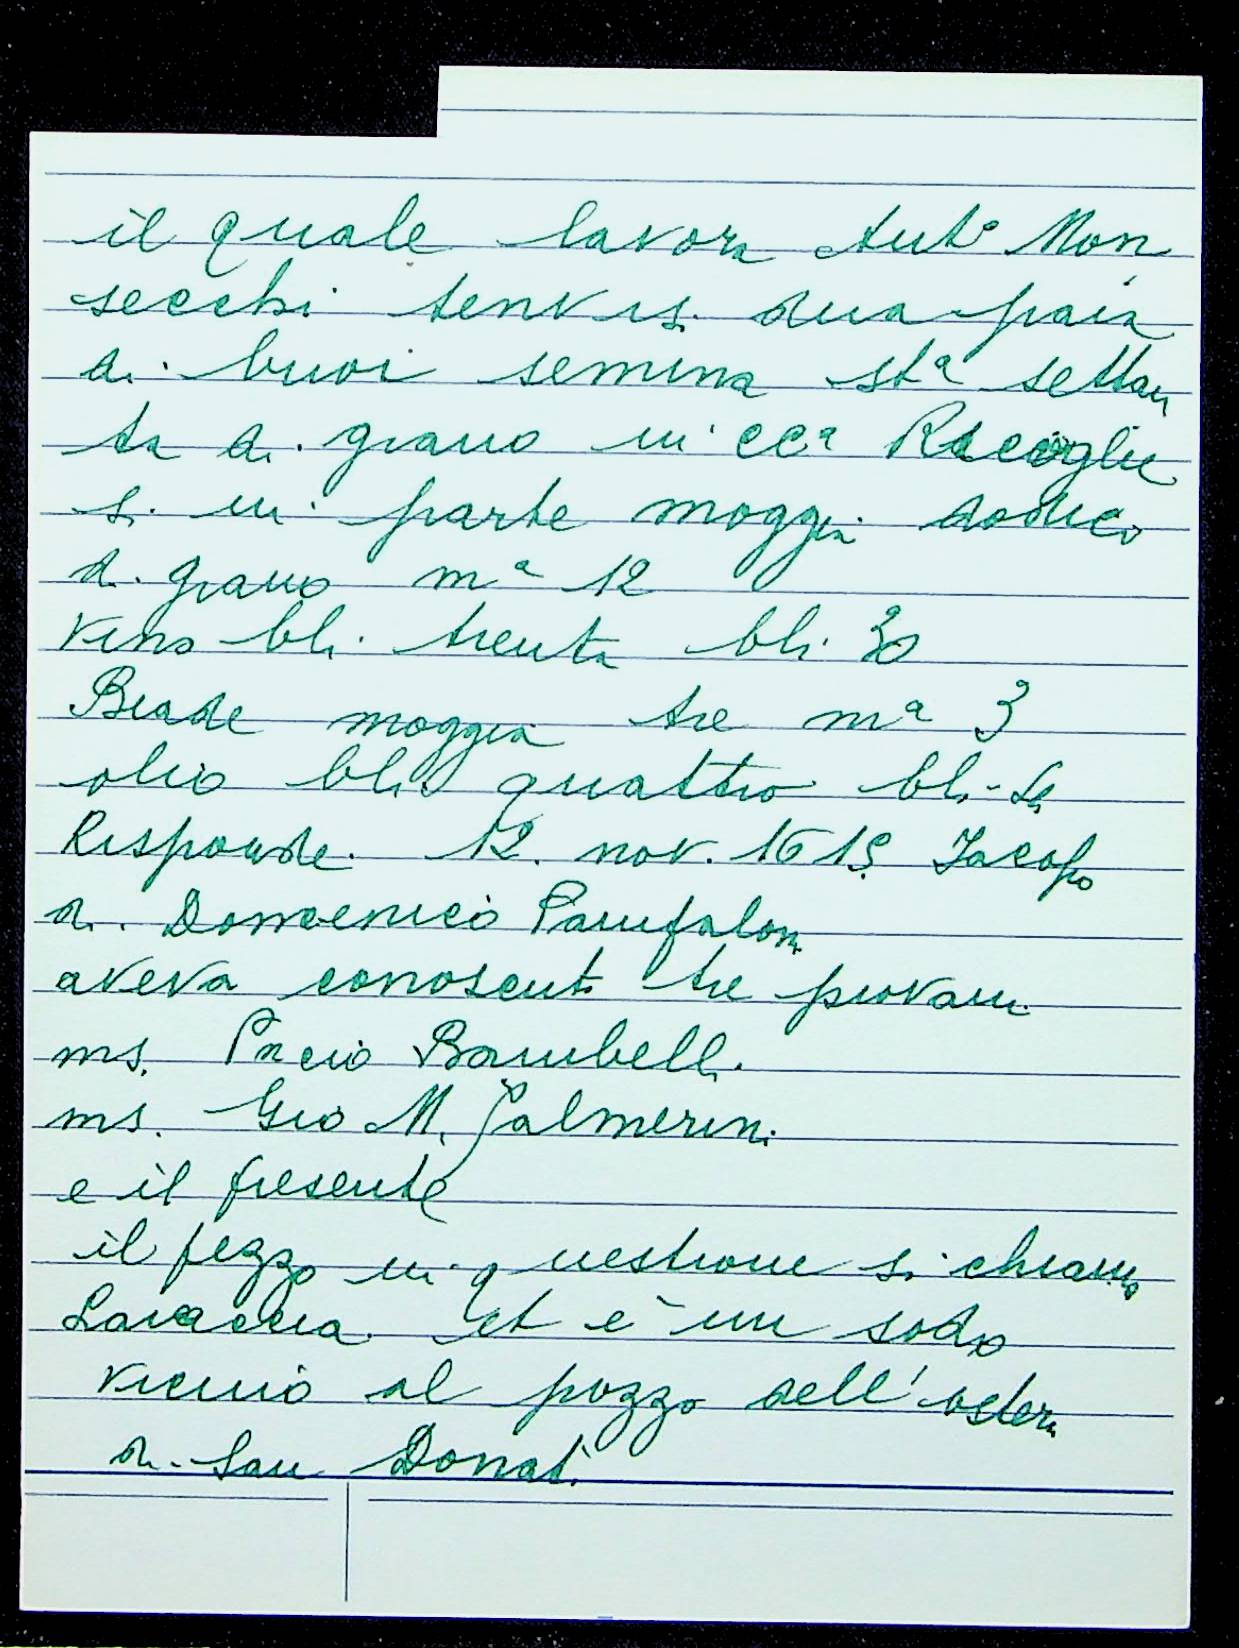 il quale lavora Ant° Mon
secchi tenvi si dua paia
di buoi semina stª settan
ta di grano in ccª Raccoglie
si in parte moggia dodici
di grano mª 12
vino bli. trenta bli. 30
Biade moggia tre mª 3
olio bli quattro bli-4
Risponde. 12. nov. 1615 Jacopo
di. Domenico Panfaloni
aveva conosciuti tre piovani
ms. Bambelli.
ms. Gio M. Palmerini
e il presente
il pezzo in questione si chiama
Lavaccia et è un sodo
vicino al pozzo dell'osteria
di San Donati